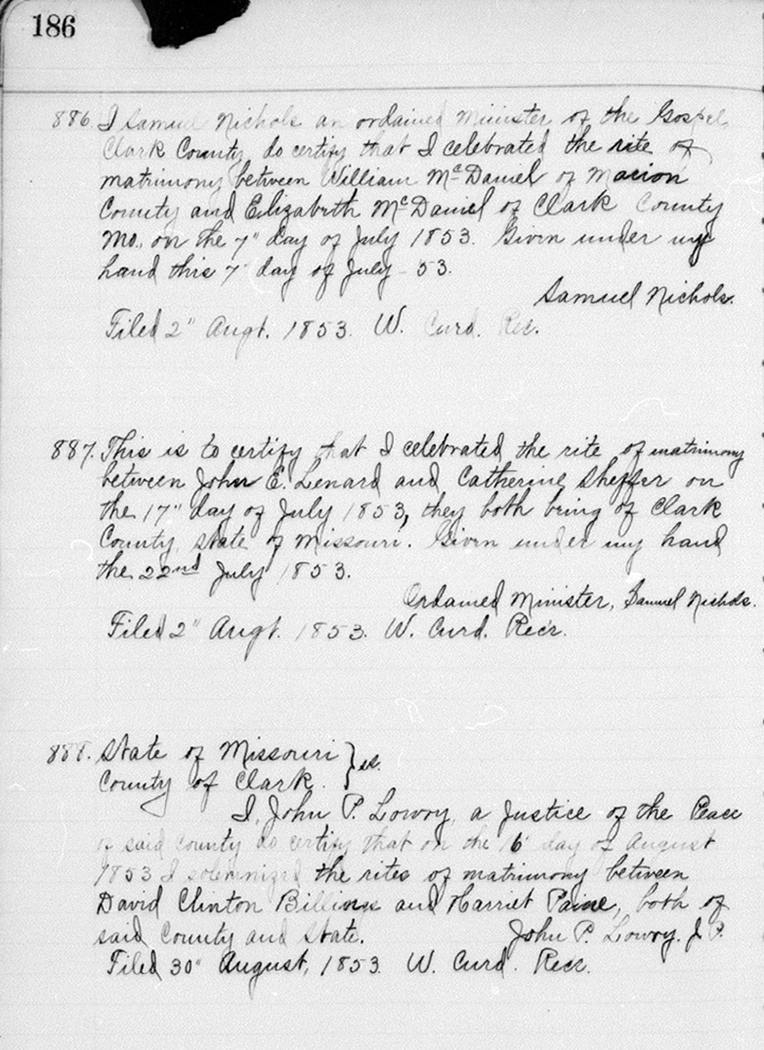 186
886. I Samuel Nichols an ordained minister of the Gospel,
Clark County, do certify that I celebrated the rite of
matrimony between William McDaniel of Marion
County and Elizabeth McDaniel of Clark County
Mo., on the 7" day of July 1853. Given under my
hand this 7" day of July - 53.
Samuel Nichols.
Filed 2" Augt. 1853. W. Curd. Rec.
887. This is to certify that I celebrated the rite of matrimony
between John E. Lenard and Catherine Sheffer on
the 17" day of July 1853, they both being of Clark
County, State of Missouri. Given under my hand
the 22nd July 1853.
Ordained Minister, Samuel Nichols.
Filed 2" Augt. 1853. W. Curd. Recr.
888. State of Missouri }
County of Clark. } ss.
I, John P. Lowry, a Justice of the Peace
of said County do certify that on the 16" day of August
1853 I solemnized the rites of matrimony between
David Clinton and Harriet Paine, both of
said County and State. John P. Lowry. J.P.
Filed 30" August, 1853. W. Curd. Recr.